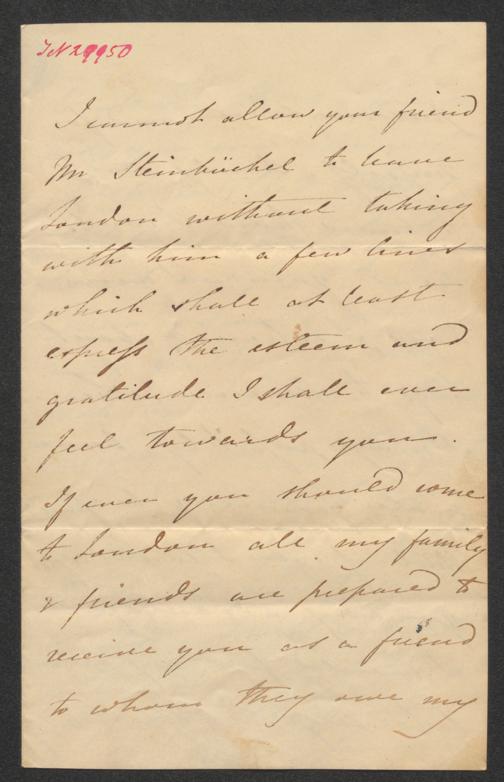 I cannot allow your friend
Mr Steinbüchel to leave
London without taking
with him a few lines
which shall at least
express the esteem and
gratitude I shall ever
feel towards you.
If ever you should come
to London all my family
& friends are prepared to
receive you as a friend
to whom they owe my